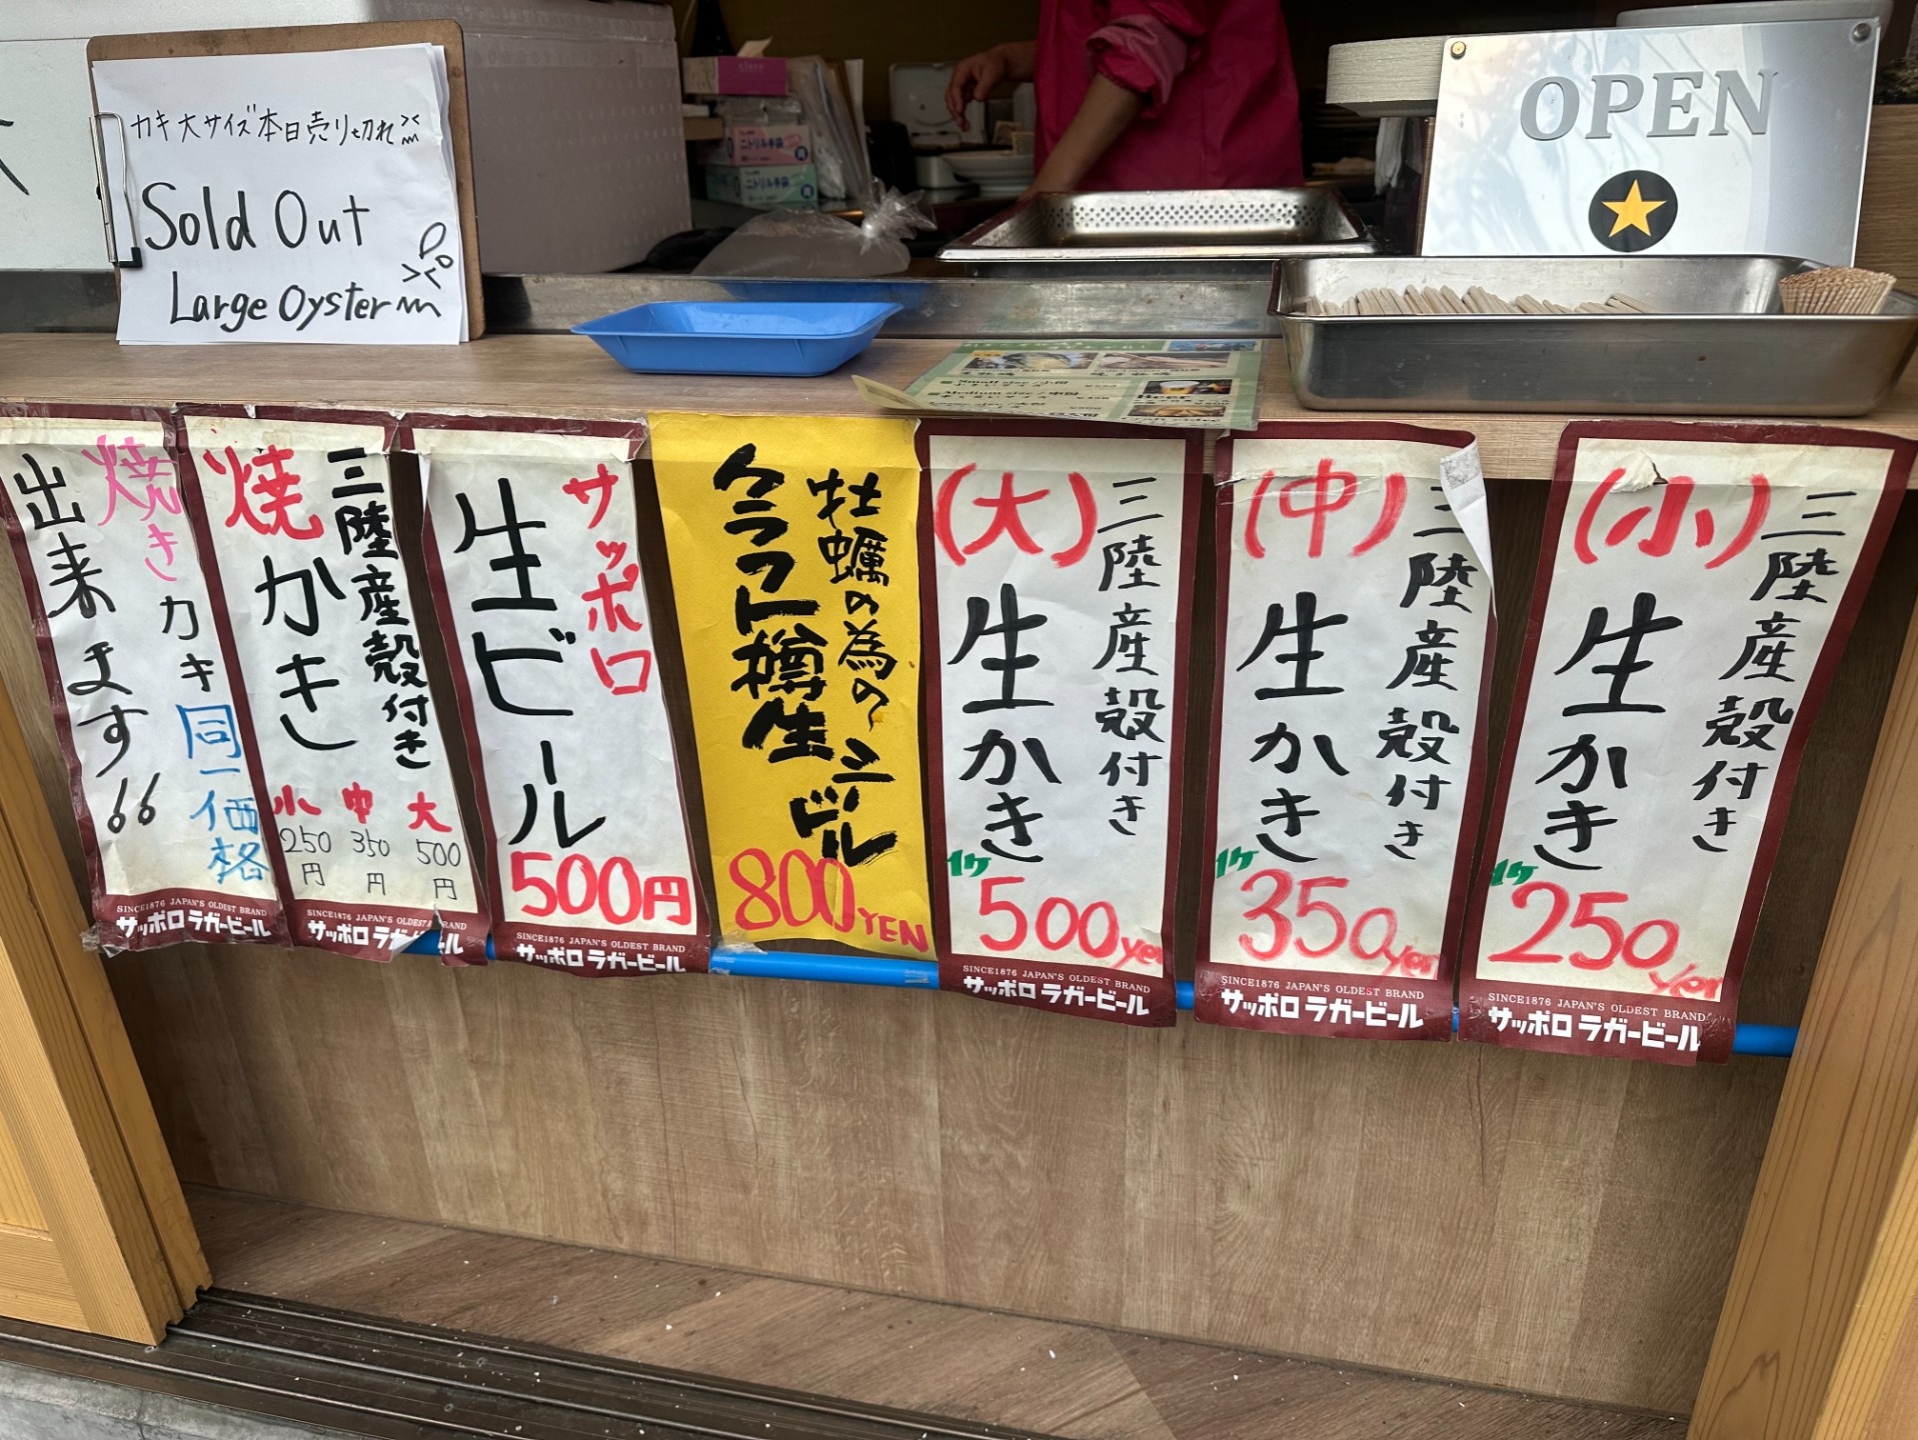 カキ大サイズ本日売り切れ
Sold Out
Large Oyster
OPEN
ニトリル手袋
ニトリル手袋
焼きカキ同一価格
出来ます
三陸産殻付き
焼かき
小 中 大
250円 350円 500円
サッポロ
生ビール
500円
牡蠣の為のシードル
クラフト樽生
800YEN
三陸産殻付き
(大)生かき
1ケ
500yen
三陸産殻付き
(中)生かき
1ケ
350yen
三陸産殻付き
(小)生かき
1ケ
250yen
SINCE1876 JAPAN'S OLDEST BRAND
サッポロ ラガービール
SINCE1876 JAPAN'S OLDEST BRAND
サッポロ ラガービール
SINCE1876 JAPAN'S OLDEST BRAND
サッポロ ラガービール
SINCE1876 JAPAN'S OLDEST BRAND
サッポロ ラガービール
SINCE1876 JAPAN'S OLDEST BRAND
サッポロ ラガービール
SINCE1876 JAPAN'S OLDEST BRAND
サッポロ ラガービール